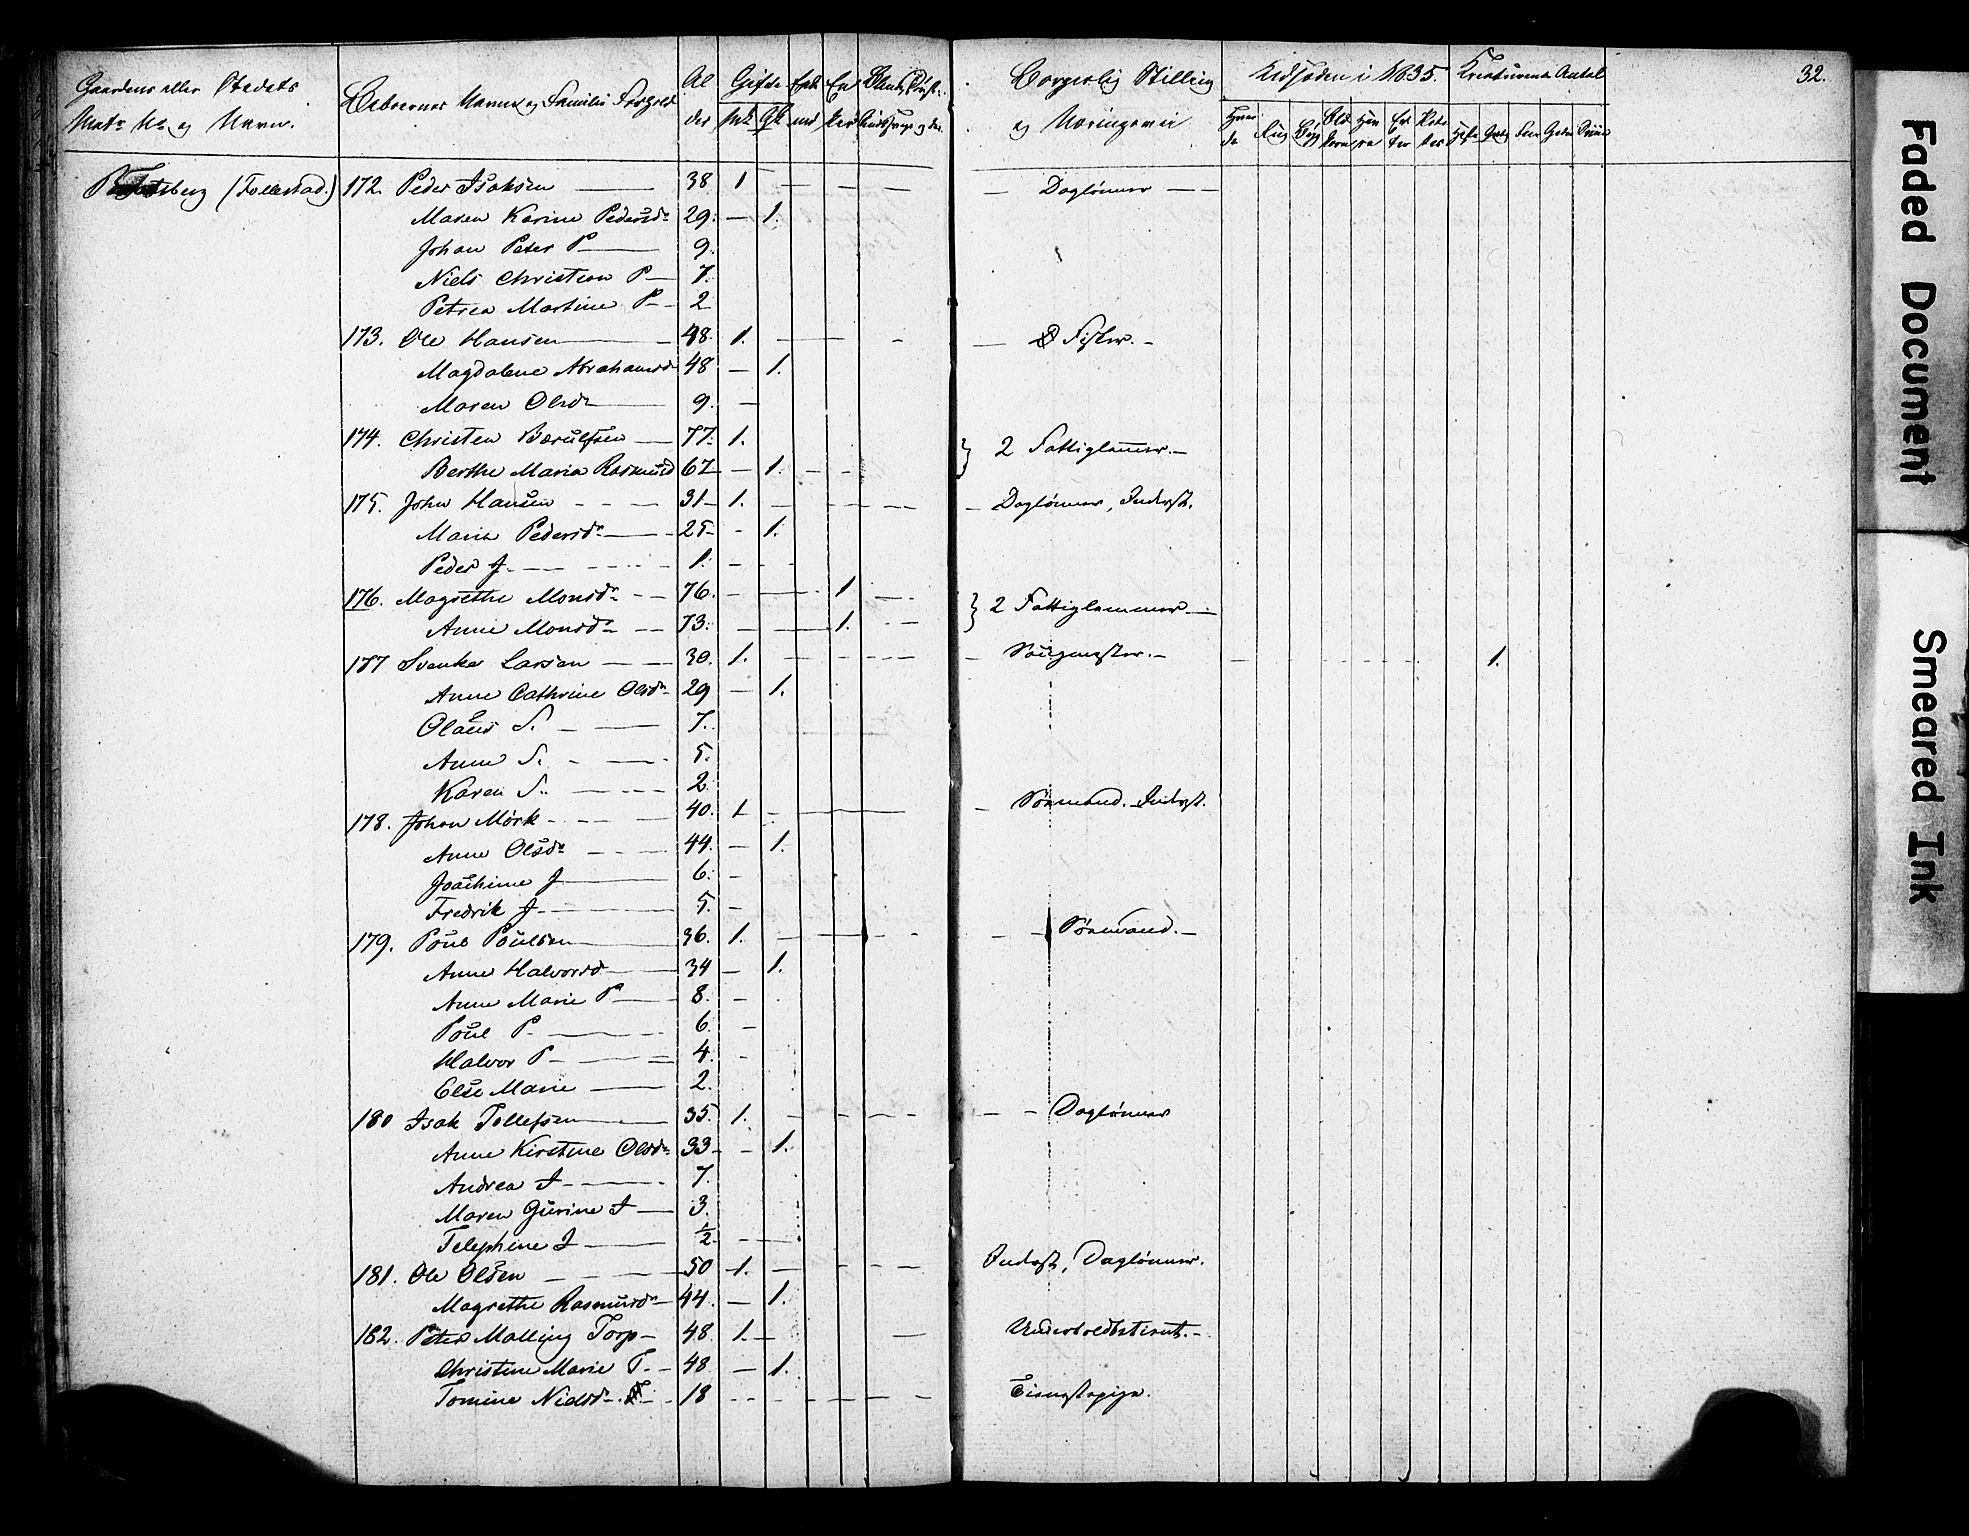 Gaardens eller Stedets Beboernes Navne og Familie Forhold Al Gifte Enk En Borgerlig Stilling Udsæden i 1835. Kreaturenes Antal 32.
Matr No og Navn. der Mk Qk med ker og Næringsvei Rug Byg Erter Heste Sviin
berg (Follestad.) 172. Peder Isaksen 38 1 Daglønner
Maren Karine Pedersdr 29. 1.
Johan Peter P 9.
Niels Christian P 7.
Petrea Martine P 2
173. Ole Hansen 48. 1. Fisker.
Magdalene Abrahamsd 48 1.
Maren Olsdr 9.
174. Christen Bærulfsen 77. 1.
} 2 Fattiglemmer.
Berthe Maria Rasmusd 67 1.
175. John Hansen 31 1. Daglønner, Inderst.
Maria Pedersdr 25 1.
Peder J. 1.
176. Magrethe Monsdr 76. 1
} 2 Fattiglemmer
Anne Monsdr 73. 1.
177 Svenke Larsen 30. 1. 1.
Anne Cathrine Olsdr 29 1.
Olaus S. 7.
Anne S. 5.
Karen S. 2
178. Johan Mörk 40. 1 Sömand. Inderst.
Anne Olsdr 44. 1.
Joachime J 6.
Fredrik J. 5.
179. Poul Poulsen 36. 1. Sömand.
Anne Halvorsd 34 1.
Anne Marie P 8.
Poul P. 6.
Halvor P 4.
Else Marie 2.
180 Isak Tollefsen 35. 1. Daglønner
Anne Kirstine Olsdr 33 1.
Andrea I 7.
Maren Gurine I 3.
Telephine I 1/2
181. Ole Olsen 50 1. Inderst, Daglønner.
Magrethe Rasmusdr 44. 1.
182. Peter Malling Torp 48. 1.
Christine Marie T. 48 1.
Tomine Nielsdr 18 Tienestepige.
Faded Document
Smeared Ink